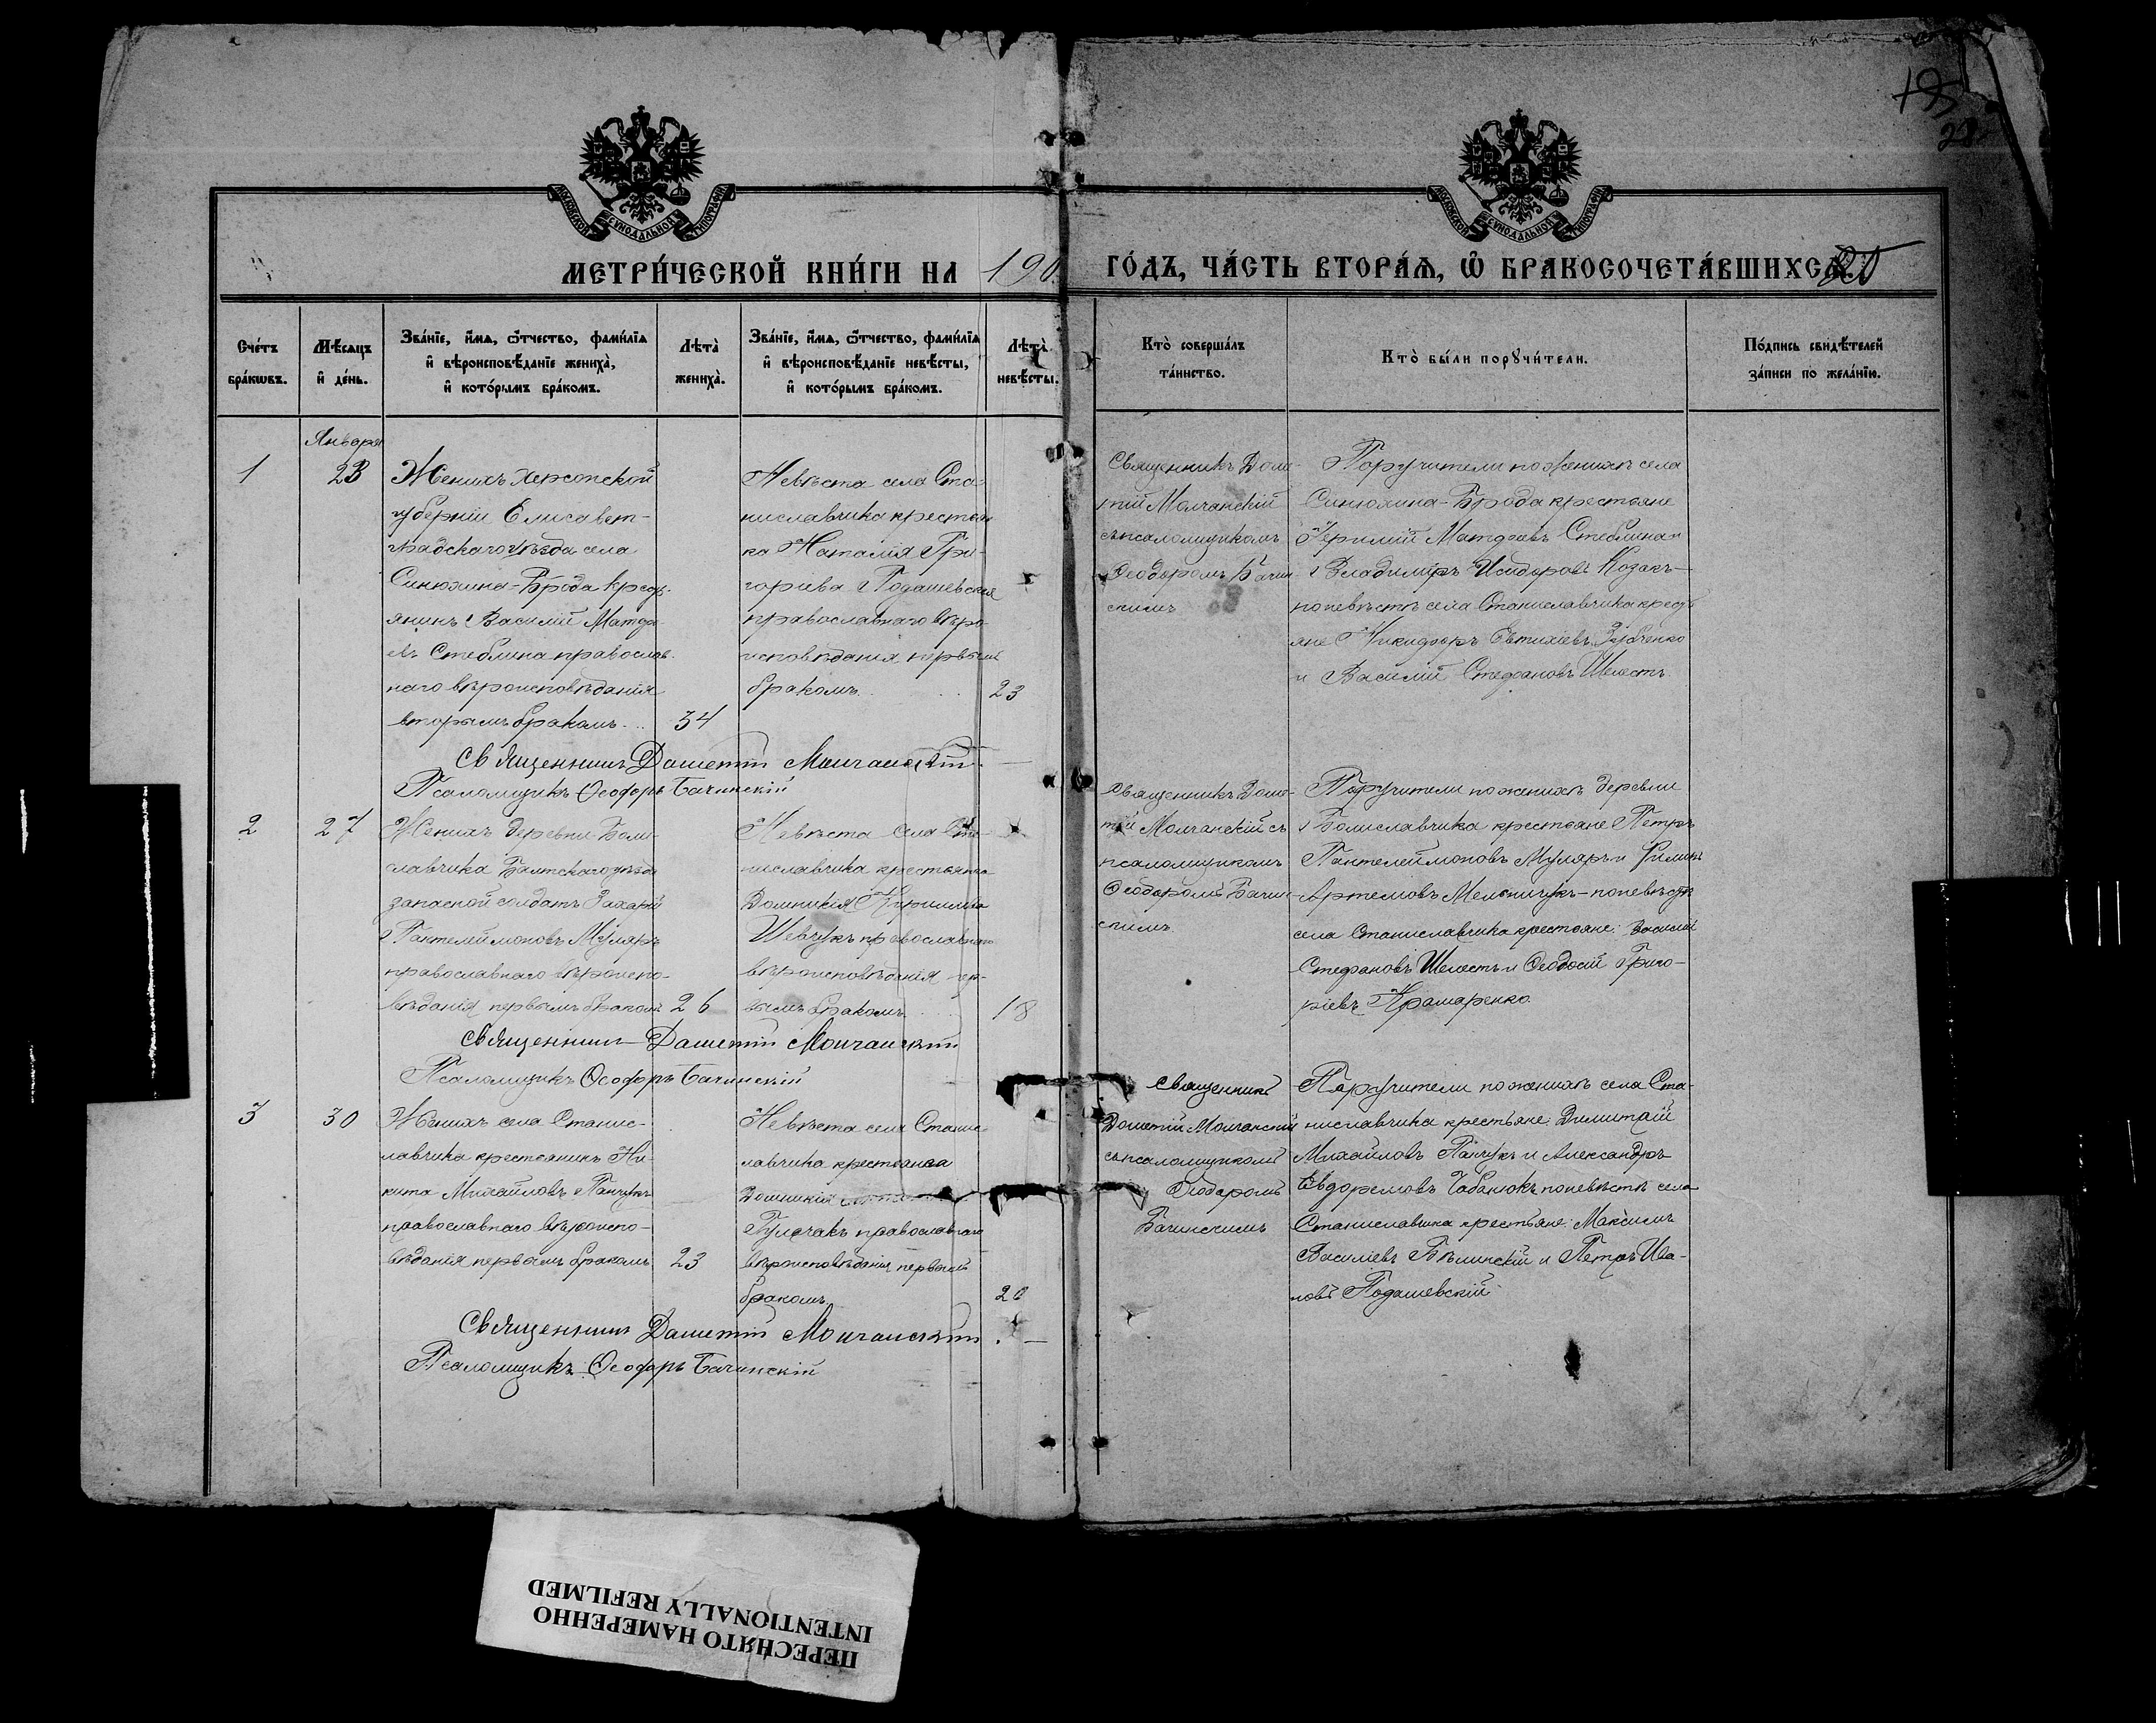 195
МОСКОВСКОЙ СѴНОДАЛЬНОЙ ТИПОГРАФІИ
МОСКОВСКОЙ СѴНОДАЛЬНОЙ ТИПОГРАФІИ
МЕТРИ́ЧЕСКОЙ КНИ́ГИ НА 190
ГО́ДЪ, ЧА́СТЬ ВТОРА́Ѧ, Ѡ҆ БРАКОСОЧЕТА́ВШИХСѦ
Сче́тъ
бра́кѡвъ.
Мѣ́сѧцъ
и҆ де́нь.
Зва́нїе, и҆́мѧ, ѻ҆́тчество, фами́лїѧ
и҆ вѣроисповѣ́данїе жениха̀,
и҆ кото́рымъ бра́комъ.
Лѣта̀
жениха̀.
Зва́нїе, и҆́мѧ, ѻ҆́тчество, фами́лїѧ
и҆ вѣроисповѣ́данїе невѣ́сты,
и҆ кото́рымъ бра́комъ.
Лѣта̀
невѣ́сты.
Кто̀ соверша́лъ
та́инство.
Кто̀ бы́ли порꙋчи́тели.
По́дпись свидѣ́телей
за́писи по жела́нїю.
Января
1
23
Женихъ Херсонской
губерніи Елисавет-
градскаго уѣзда села
Синюхина-Брода крест-
янинъ Василій Матѳе-
евъ Стеблина православ-
наго вѣроисповѣданія
вторымъ бракомъ
34
Невѣста села Ста-
ниславчика крестьян
ка Наталія Гри-
горіева Подашевская
православнаго вѣро-
исповѣданія первымъ
бракомъ
23
Священникъ Доме-
тій Молчанскій
съ псаломщикомъ
Ѳеодоромъ Бачин-
скимъ
Поручители по женихѣ села
Синюхина-Брода крестьяне
Матѳеевъ Стеблина и
Владиміръ Исидоровъ Козакъ—
по невѣстѣ села Станиславчика крест
яне Никифоръ Евтихіевъ Зубченко
и Василій Стефановъ Шелестъ
Священникъ Дометій Молчанскій
Псаломщикъ Ѳеодоръ Бачинскій
2
27
Женихъ деревни Боли-
славчика Балтскаго уѣзда
запасной солдатъ Захарій
Пантелеймоновъ Муляръ
православнаго вѣроиспо-
вѣданія первымъ бракомъ
26
Невѣста села Ста-
ниславчика крестьянка
Домникія Кириллова
Шевчукъ православнаго
вѣроисповѣданія пер-
вымъ бракомъ
18
Священникъ Доме-
тій Молчанскій съ
псаломщикомъ
Ѳеодоромъ Бачин-
скимъ
Поручители по женихѣ деревни
Болиславчика крестьяне Петръ
Пантелеймоновъ Муляръ и Филиппъ
Артемовъ Мельничукъ—по невѣстѣ
села Станиславчика крестьяне: Василій
Стефановъ Шелестъ и Ѳеодосій Григо-
ріевъ Крамаренко
Священникъ Дометій Молчанскій
Псаломщикъ Ѳеодоръ Бачинскій
3
30
Женихъ села Станис-
лавчика крестьянинъ Ни-
кита Михайловъ Панчукъ
православнаго вѣроиспо-
вѣданія первымъ бракомъ
23
Невѣста села Станис-
лавчика крестьянка
Домникія
православнаго
вѣроисповѣданія первымъ
бракомъ
20
Священникъ
Дометій Молчанскій
съ псаломщикомъ
Ѳеодоромъ
Бачинскимъ
Поручители по женихѣ села Ста-
ниславчика крестьяне:
Михайловъ Панчукъ и Александръ
Евдокимовъ Чабанюкъ по невѣстѣ села
Станиславчика крестьяне: Максимъ
Василіевъ Бѣлинскій и Петръ Ива-
новъ Подашевскій
Священникъ Дометій Молчанскій
Псаломщикъ Ѳеодоръ Бачинскій
ПЕРЕСНЯТО НАМЕРЕННО
INTENTIONALLY REFILMED